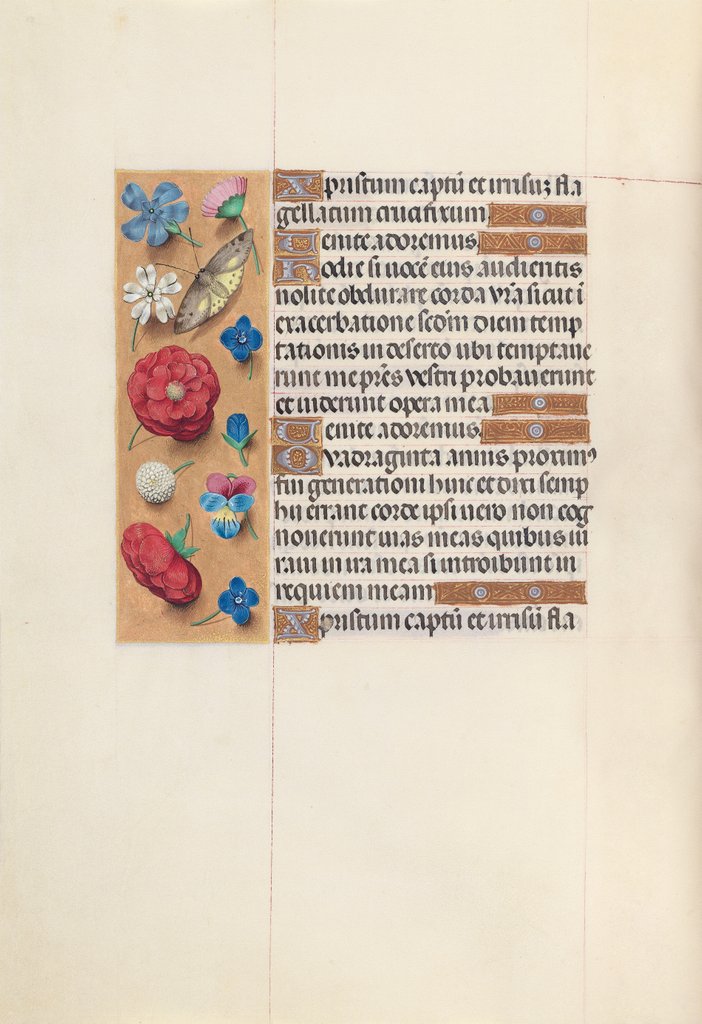 Xpristum captū et irrisuʒ fla
gellatum crucifixum
Uenite adoremus
Hodie si vocē eius audieritis
nolite obdurare corda vr̄a sicut i
exacerbatione scdm̄ diem temp
tationis in deserto ubi temptaue
runt me pr̄es vestri probauerunt
et uiderunt opera mea
Uenite adoremus
Quadraginta annis proximꝰ
fui generationi huic et dixi semp
hii errant corde ipsi uero non cog
nouerunt uias meas quibus iu
raui in ira mea si introibunt in
requiem meam
Xpristum captū et irrisū fla